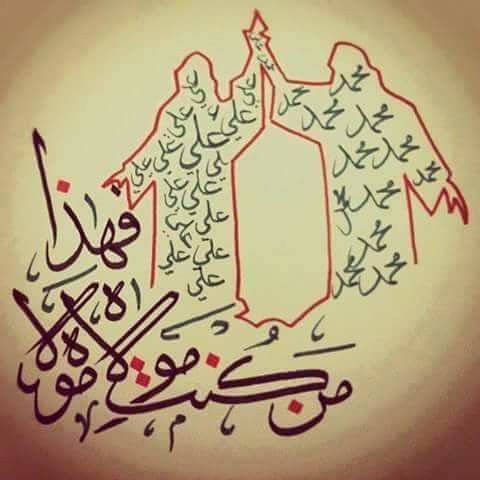 علي
علي محمد
علي علي محمد
علي علي محمد محمد
علي علي علي محمد محمد
علي علي علي محمد
علي علي محمد
علي محمد
علي علي محمد محمد
علي
من كنت مولاه
فهذا
مولاه